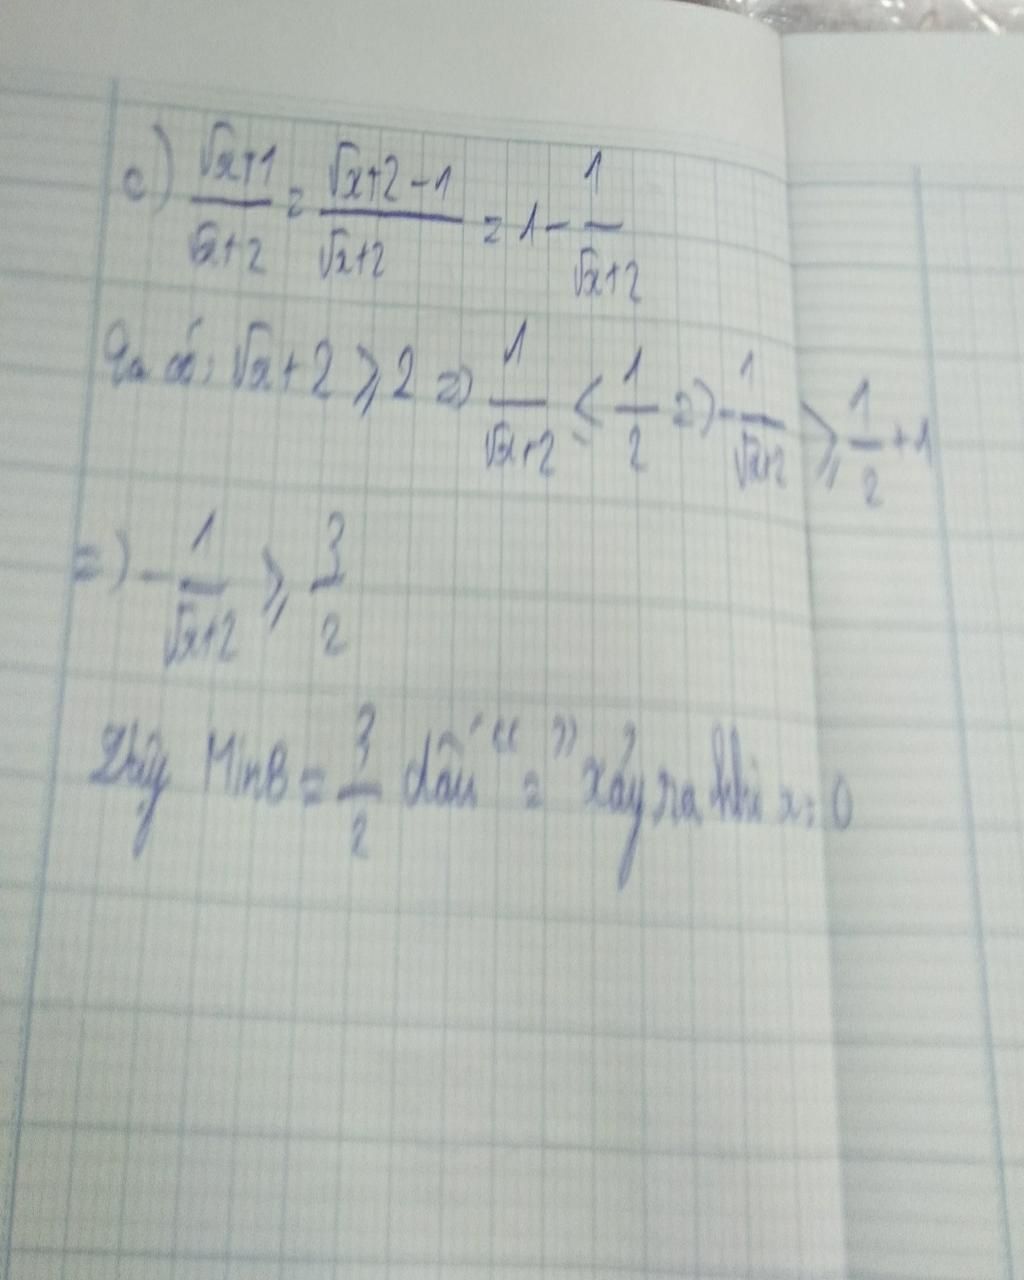 c) \frac{\sqrt{x}+1}{\sqrt{x}+2} = \frac{\sqrt{x}+2-1}{\sqrt{x}+2} = 1 - \frac{1}{\sqrt{x}+2}
Ta có: \sqrt{x}+2 ⩾ 2 => \frac{1}{\sqrt{x}+2} ⩽ \frac{1}{2} => -\frac{1}{\sqrt{x}+2} ⩾ \frac{1}{2} + 1
=> -\frac{1}{\sqrt{x}+2} ⩾ \frac{3}{2}
Vậy MinB = \frac{3}{2} dấu “=” xảy ra khi x = 0